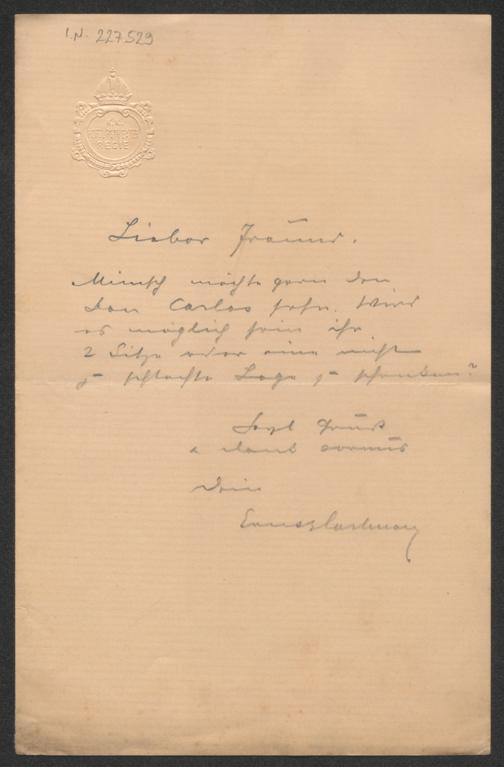 I.N. 227.529
K.K.
HOFBURGTHEATER
REGIE
Lieber Freund.
Mimsch möchte gern den
Don Carlos sehn. Wird
es möglich sein ihr
2 Sitze oder eine nicht
zu schlechte Loge zu schenken?
Herzl Gruß
& Dank voraus
Dein
Ernst Hartmann